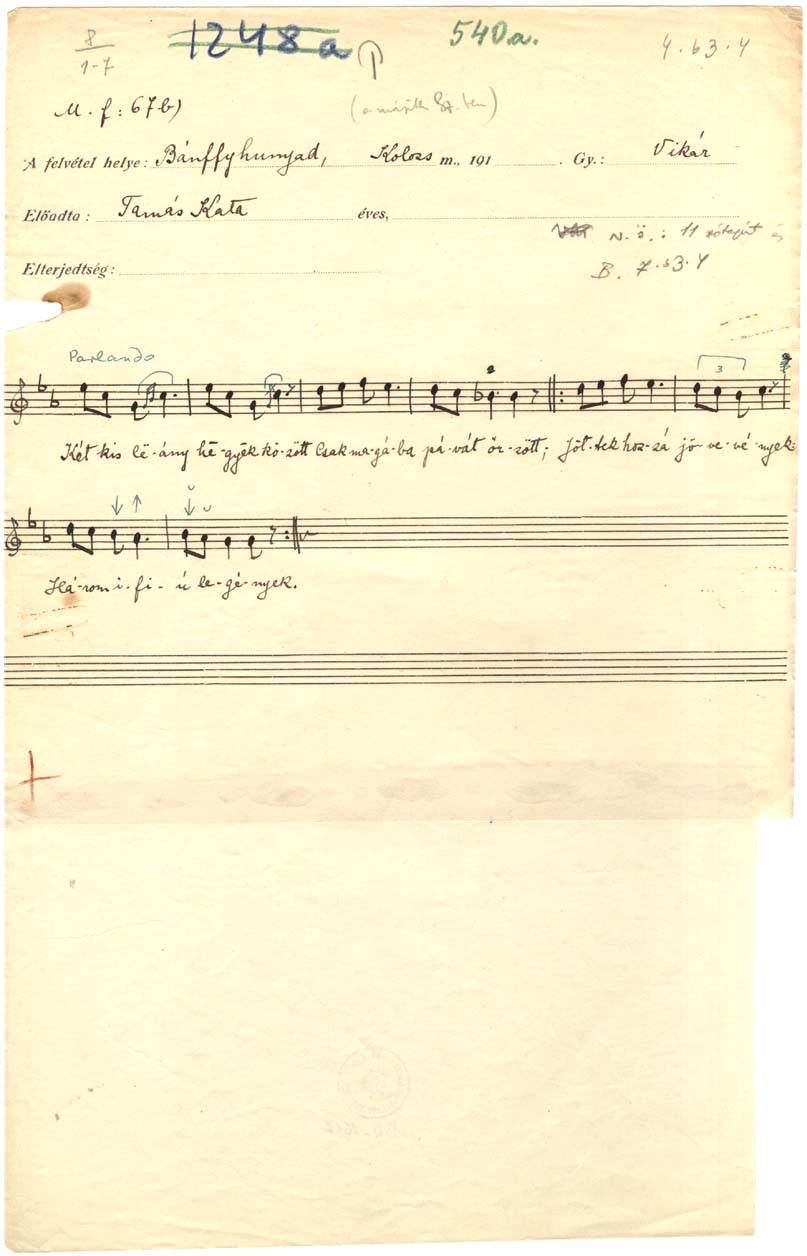 8/1-7 1248a 540a. 4.b3.4
M.f: 67b)
A felvétel helye: Bánffyhunyad, Kolozs m., 191 . Gy.: Vikár
Előadta: Tamás Kata éves,
N.ö.: 11 és
Elterjedtség: B. 7.b3.4
Parlando
3
Két kis lë-ány hë-gyëk kö-zött Csak ma-gá-ba pá-vát őr-zött; Jöt-tek hoz-zá jö-ve-vé-nyek:
Há-rom i-fi-ú le-gé-nyek.